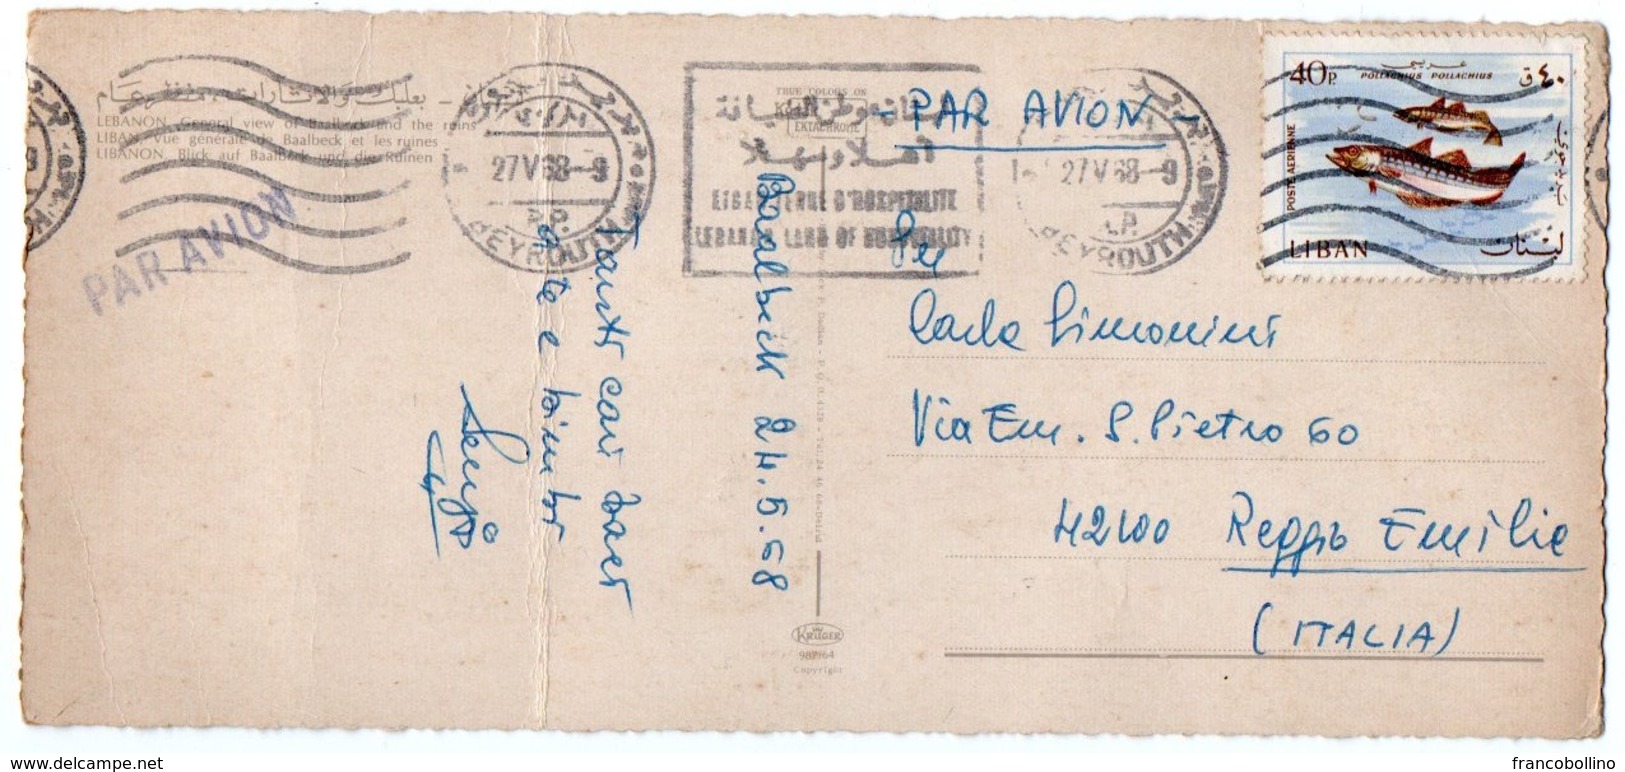 لبنان - بعلبك والآثارات ، منظر عام
LEBANON, General view of Baalbeck and the ruins
LIBAN, Vue générale de Baalbeck et les ruines
LIBANON, Blick auf Baalbeck und die Ruinen
PAR AVION
27 V 68 - 9
BEYROUTH
R.P.
TRUE COLORS ON
EKTACHROME
لبنان وطن الضيافة
اهلا وسهلا
LIBAN TERRE D'HOSPITALITE
LEBANON LAND OF HOSPITALITY
- PAR AVION -
27 V 68 - 9
BEYROUTH
R.P.
40P.
POLLACHIUS POLLACHIUS
٤٠ ق
POSTE AERIENNE
بريد جوي
LIBAN
لبنان
Baalbeck 24.5.68
Tanti cari baci
a te e bimbi
Sergio
Per
Carla Simonini
Via Em. S. Pietro 60
42100 Reggio Emilia
(ITALIA)
KRÜGER
987/64
Copyright
www.delcampe.net
francobollino